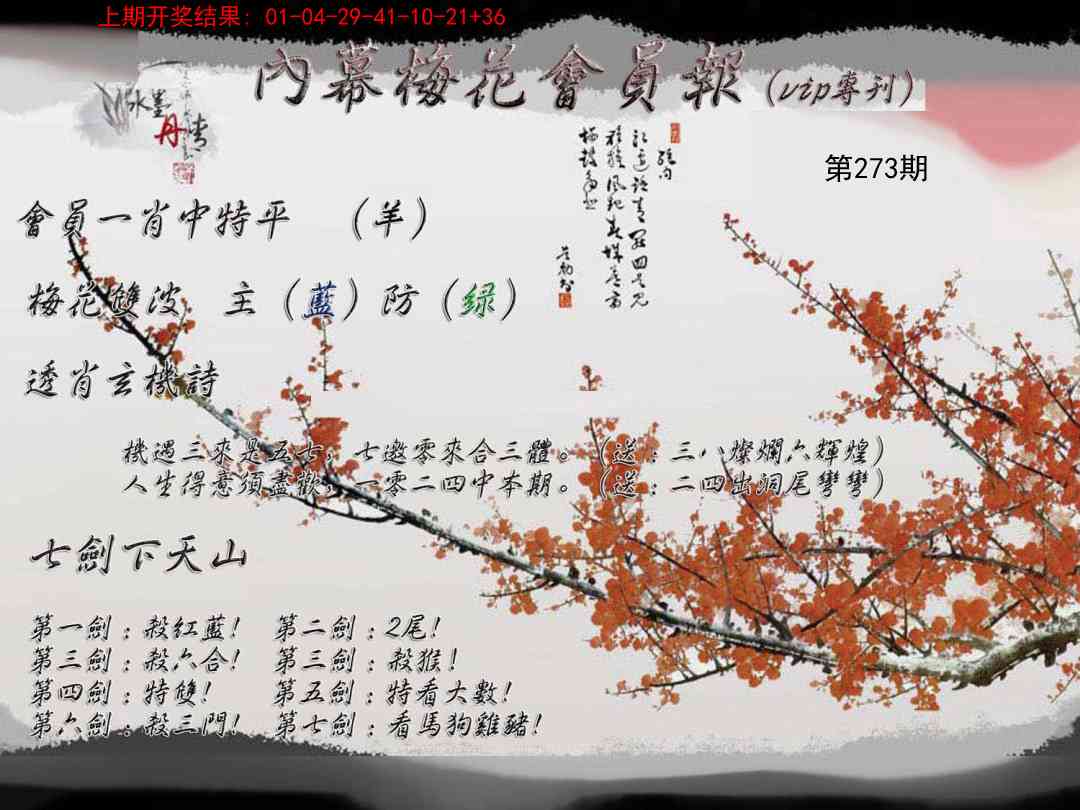 上期开奖结果: 01-04-29-41-10-21+36
內幕梅花會員報(vip專刊)
水墨
丹情
第273期
會員一肖中特平 （羊）
梅花雙波 主（藍）防（绿）
透肖玄機詩
機遇三來是五七，七邀零來合三體。（送：三八燦爛六輝煌）
人生得意須盡歡，一零二四中本期。（送：二四出洞尾彎彎）
七劍下天山
第一劍：殺紅藍！ 第二劍：2尾！
第三劍：殺六合！ 第三劍：殺猴！
第四劍：特雙！ 第五劍：特看大數！
第六劍：殺三門！ 第七劍：看馬狗雞豬！